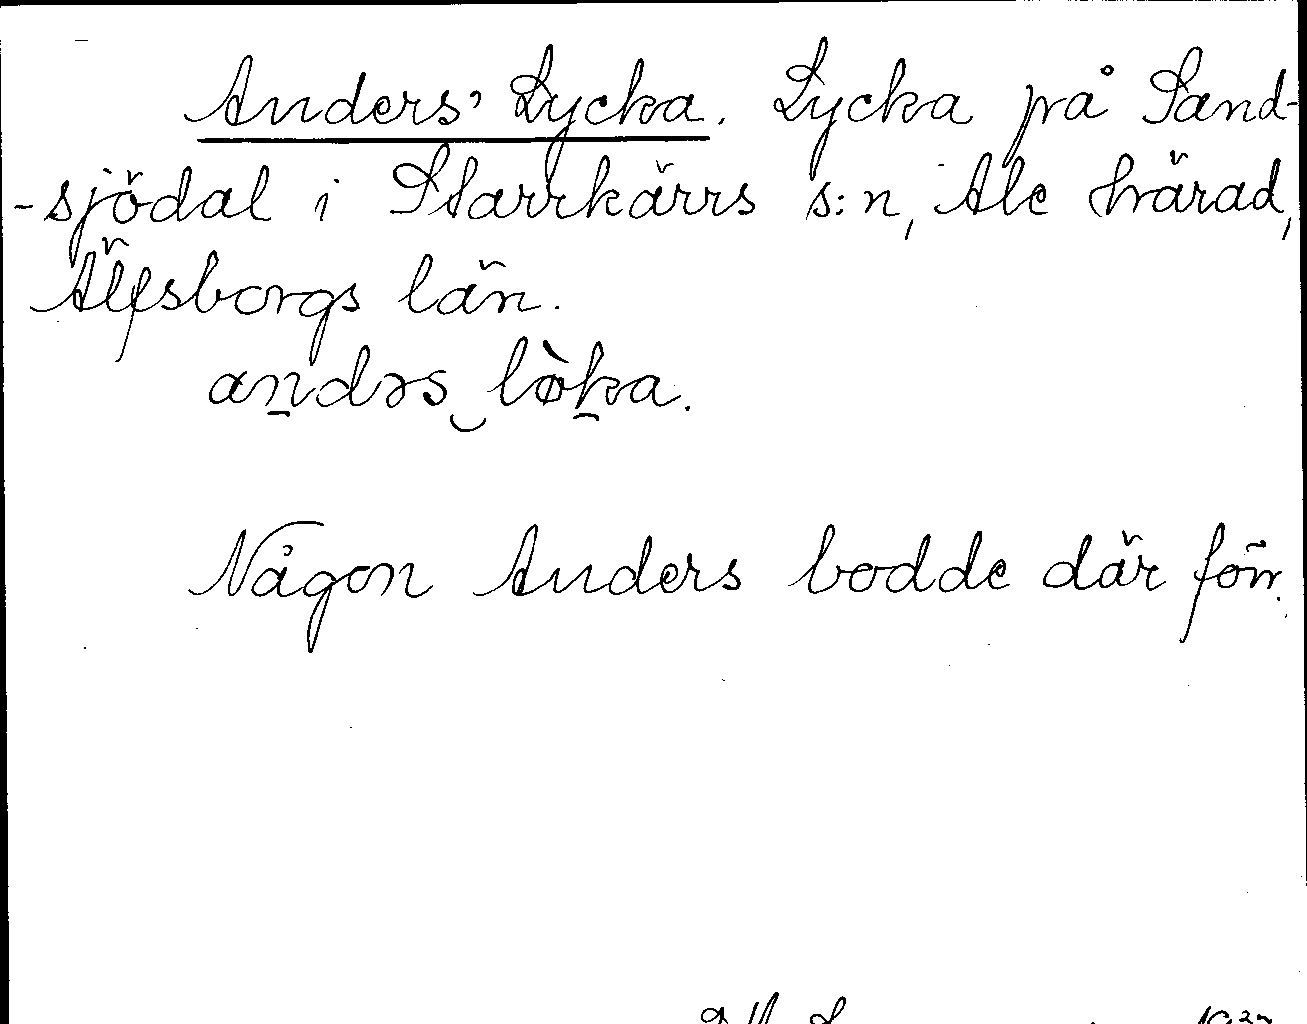 Anders' Lycka. Lycka på Sand-
-sjödal i Starrkärrs s:n, Ale härad,
Älfsborgs län.
an̠dəs‿lø̀k̠a.
Någon Anders bodde där förr.